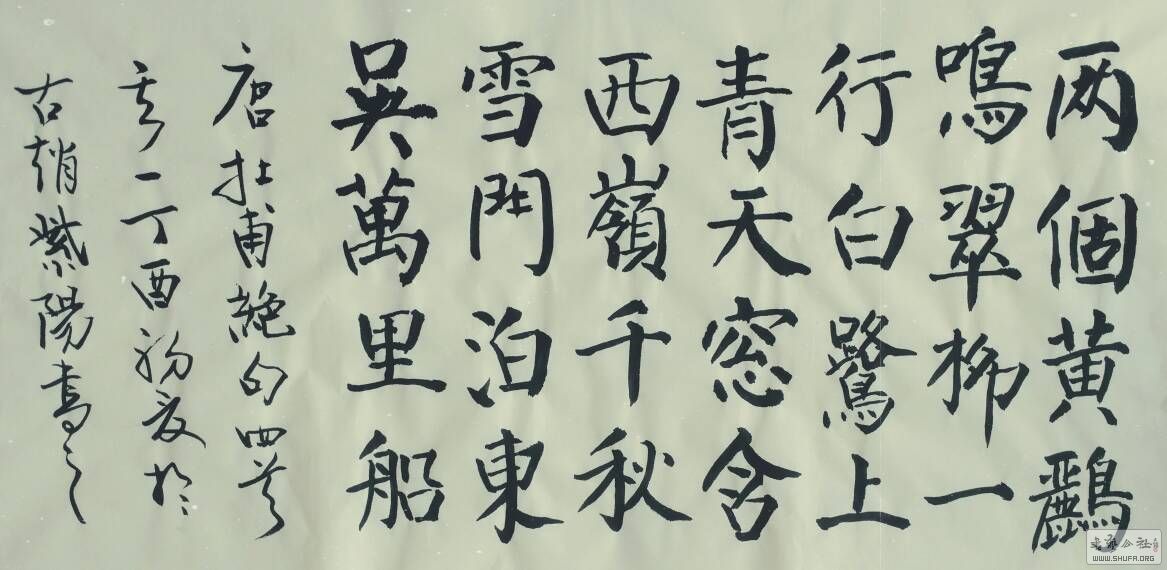 两個黄鸝
鳴翠柳一
行白鷺上
青天窓含
西嶺千秋
雪門泊東
吳萬里船
唐杜甫絶句四首
其一丁酉初夏於
古趙紫陽書之
WWW.SHUFA.ORG